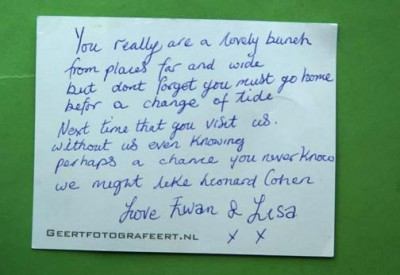 You really are a lovely bunch
from places far and wide
but dont forget you must go home
befor a change of tide
Next time that you visit us.
without us even knowing
perhaps a chance you never know
we might like Leonard Cohen
Love Ewan & Lisa
x x
GEERTFOTOGRAFEERT.NL